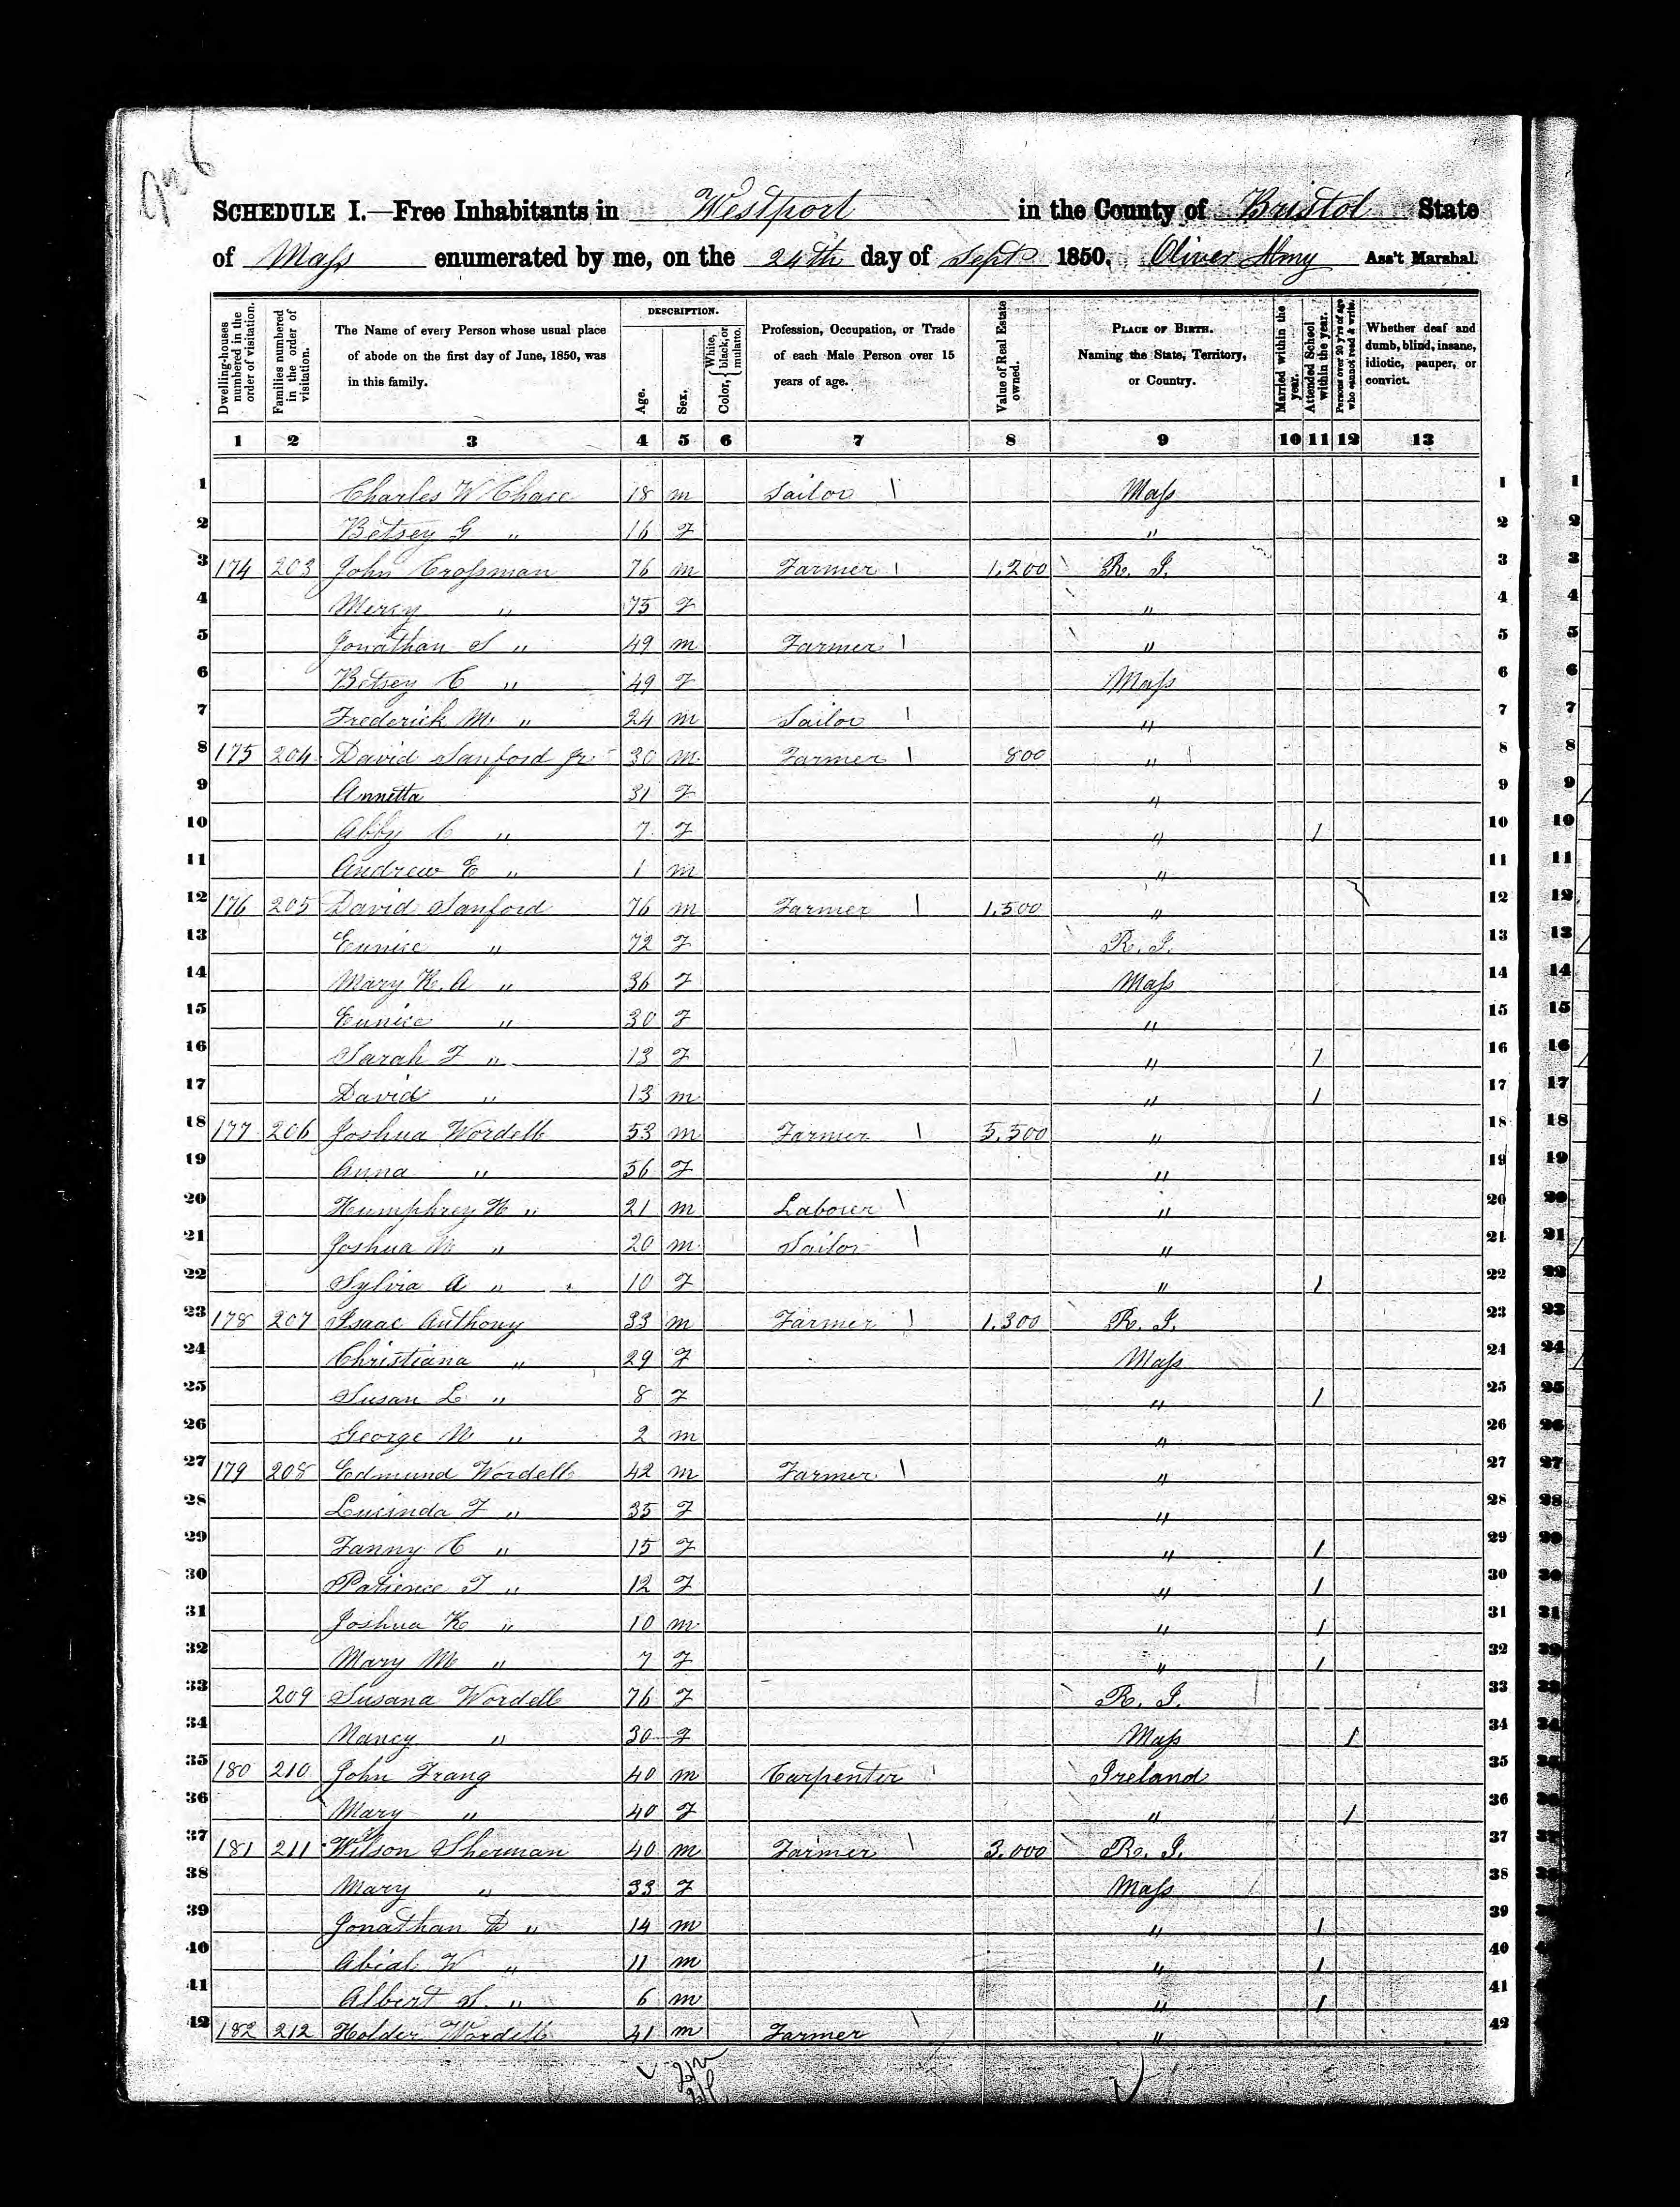 936
SCHEDULE I.—Free Inhabitants in Westport in the County of Bristol State
of Mass enumerated by me, on the 24th day of Sept 1850. Oliver Almy Ass't Marshal.
Dwelling-houses numbered in the order of visitation.
Families numbered in the order of visitation.
The Name of every Person whose usual place of abode on the first day of June, 1850, was in this family.
DESCRIPTION.
Age.
Sex.
Color, { White, black, or mulatto.
Profession, Occupation, or Trade of each Male Person over 15 years of age.
Value of Real Estate owned.
PLACE OF BIRTH. Naming the State, Territory, or Country.
Married within the year.
Attended School within the year.
Persons over 20 y'rs of age who cannot read & write.
Whether deaf and dumb, blind, insane, idiotic, pauper, or convict.
1 2 3 4 5 6 7 8 9 10 11 12 13
1 Charles W Chace 18 m Sailor Mass 1
2 Betsey G " 16 F " 2
3 174 203 John Crossman 76 m Farmer 1,200 R. I. 3
4 Mercy " 75 F " 4
5 Jonathan S " 49 m Farmer " 5
6 Betsey C " 49 F Mass 6
7 Frederick M. " 24 m Sailor " 7
8 175 204 David Sanford Jr 30 m Farmer 800 " 8
9 Annetta 31 F " 9
10 Abby C " 7 F " 1 10
11 Andrew E " 1 m " 11
12 176 205 David Sanford 76 m Farmer 1,500 " 12
13 Eunice " 72 F R. I. 13
14 Mary H. A " 36 F Mass 14
15 Eunice " 30 F " 15
16 Sarah F " 13 F " 1 16
17 David " 13 m " 1 17
18 177 206 Joshua Wordell 53 m Farmer 5,500 " 18
19 Anna " 56 F " 19
20 Humphrey H " 21 m Laborer " 20
21 Joshua M " 20 m Sailor " 21
22 Sylvia A " 10 F " 1 22
23 178 207 Isaac Anthony 33 m Farmer 1,300 R. I. 23
24 Christiana " 29 F Mass 24
25 Susan L " 8 F " 1 25
26 George M " 2 m " 26
27 179 208 Edmund Wordell 42 m Farmer " 27
28 Lucinda F " 35 F " 28
29 Fanny C " 15 F " 1 29
30 Patience T " 12 F " 1 30
31 Joshua K " 10 m " 1 31
32 Mary M " 7 F " 1 32
33 209 Susana Wordell 76 F R. I. 33
34 Nancy " 30 F Mass 1 34
35 180 210 John Frang 40 m Carpenter Ireland 35
36 Mary " 40 F " 1 36
37 181 211 Wilson Sherman 40 m Farmer 3,000 R. I. 37
38 Mary " 33 F Mass 38
39 Jonathan D " 14 m " 1 39
40 Abial W " 11 m " 1 40
41 Albert S. " 6 m " 1 41
42 182 212 Holder Wordell 41 m Farmer " 42